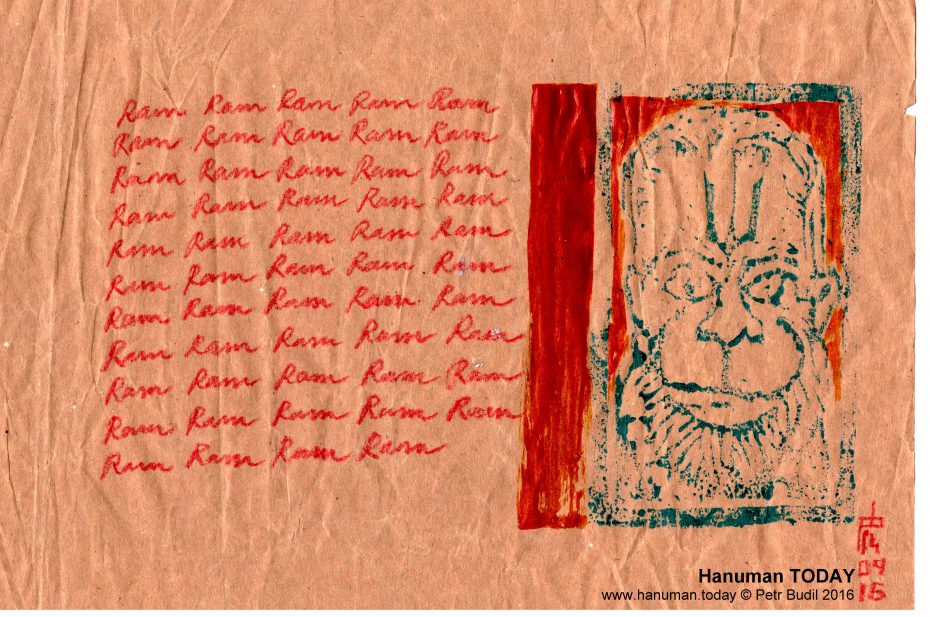 Ram Ram Ram Ram Ram
Ram Ram Ram Ram Ram
Ram Ram Ram Ram Ram
Ram Ram Ram Ram Ram
Ram Ram Ram Ram Ram
Ram Ram Ram Ram Ram
Ram Ram Ram Ram Ram
Ram Ram Ram Ram Ram
Ram Ram Ram Ram Ram
Ram Ram Ram Ram Ram
Ram Ram Ram Ram
14
04
Hanuman TODAY
www.hanuman.today © Petr Budil 2016